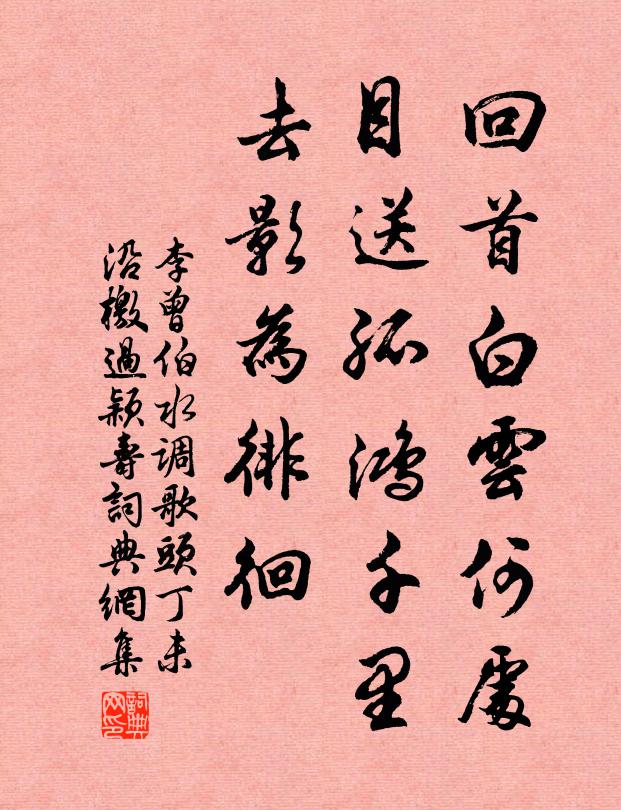 回首白雲何處
目送孤鴻千里
去影為徘徊
李曾伯水调歌頭丁未
沿檄過颍壽詞典網集
詞典
网印